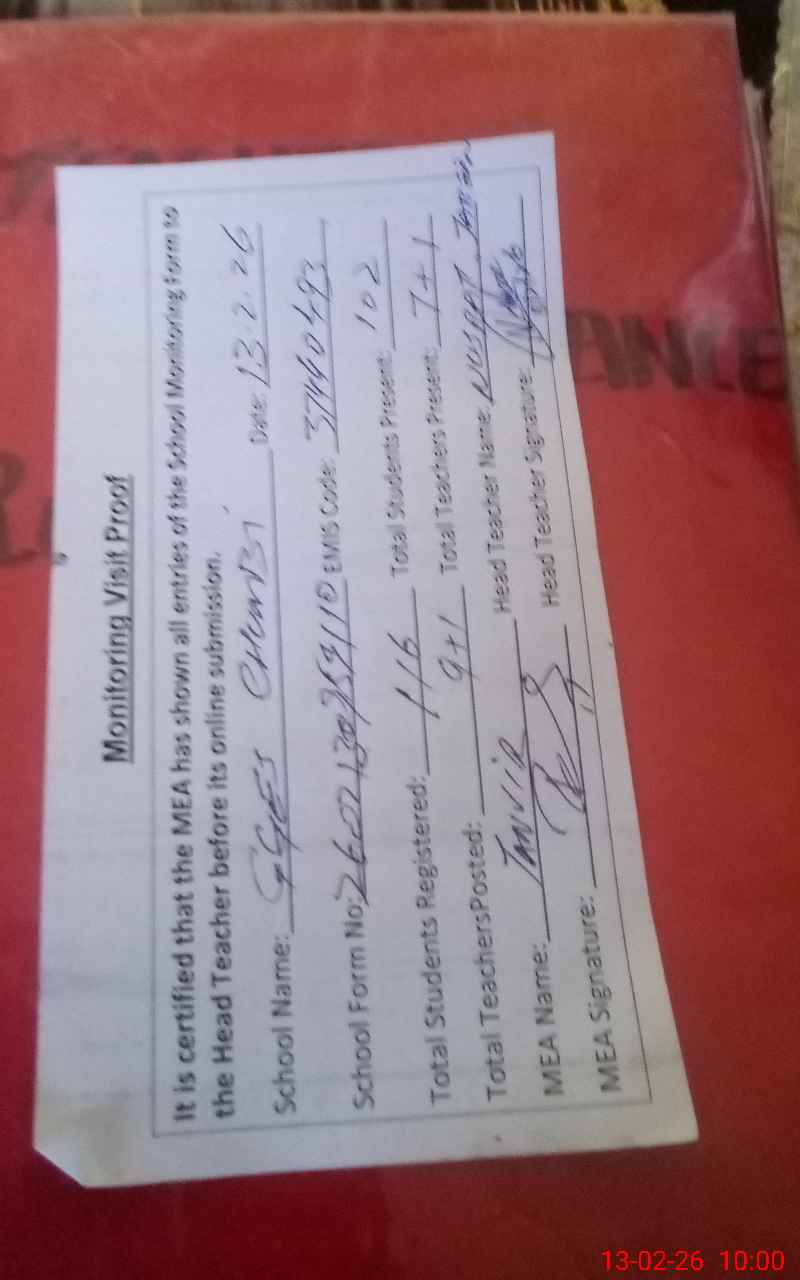 Monitoring Visit Proof
It is certified that the MEA has shown all entries of the School Monitoring Form to
the Head Teacher before its online submission.
School Name: GGES CHUMBI Date: 13.2.26
School Form No: EMIS Code: 37440493
Total Students Registered: 116 Total Students Present: 102
Total TeachersPosted: 9+1 Total Teachers Present: 7+1
MEA Name: TANVIR Head Teacher Name: NUSRAT
MEA Signature: Head Teacher Signature:
13-02-26 10:00